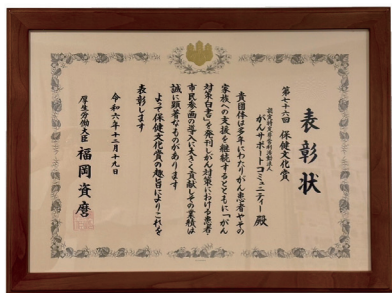 表彰状
第七十六回 保健文化賞
認定特定非営利活動法人
がんサポートコミュニティー 殿
貴団体は多年にわたりがん患者やその
家族への支援を継続するとともに「がん
対策白書」を発刊しがん対策における患者
市民参画の導入に大きく貢献しその業績は
誠に顕著なものがあります
よって保健文化賞の趣旨によりこれを
表彰します
令和六年十二月十九日
厚生労働大臣 福岡資麿